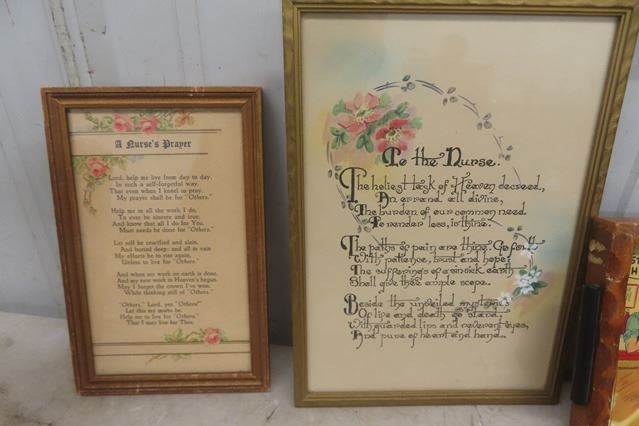 A Nurse's Prayer
Lord, help me live from day to day,
In such a self-forgetful way,
That even when I kneel to pray,
My prayer shall be for "Others."
Help me in all the work I do,
To ever be sincere and true,
And know that all I do for You,
Must needs be done for "Others."
Let self be crucified and slain,
And buried deep; and all in vain
My efforts be to rise again,
Unless to live for "Others."
And when my work on earth is done,
And my new work in Heaven's begun,
May I forget the crown I've won,
While thinking still of "Others."
"Others," Lord, yes "Others!"
Let this my motto be,
Help me to live for "Others,"
That I may live for Thee.
To the Nurse.
The holiest task of Heaven decreed,
An errand all divine,
The burden of our common need
To render less, is thine.
The paths of pain are thine. Go forth
With patience, trust and hope;
The sufferings of a sin-sick earth
Shall give thee ample scope.
Beside the unveiled mysteries
Of life and death go stand,
With guarded lips and reverent eyes,
And pure of heart and hand.